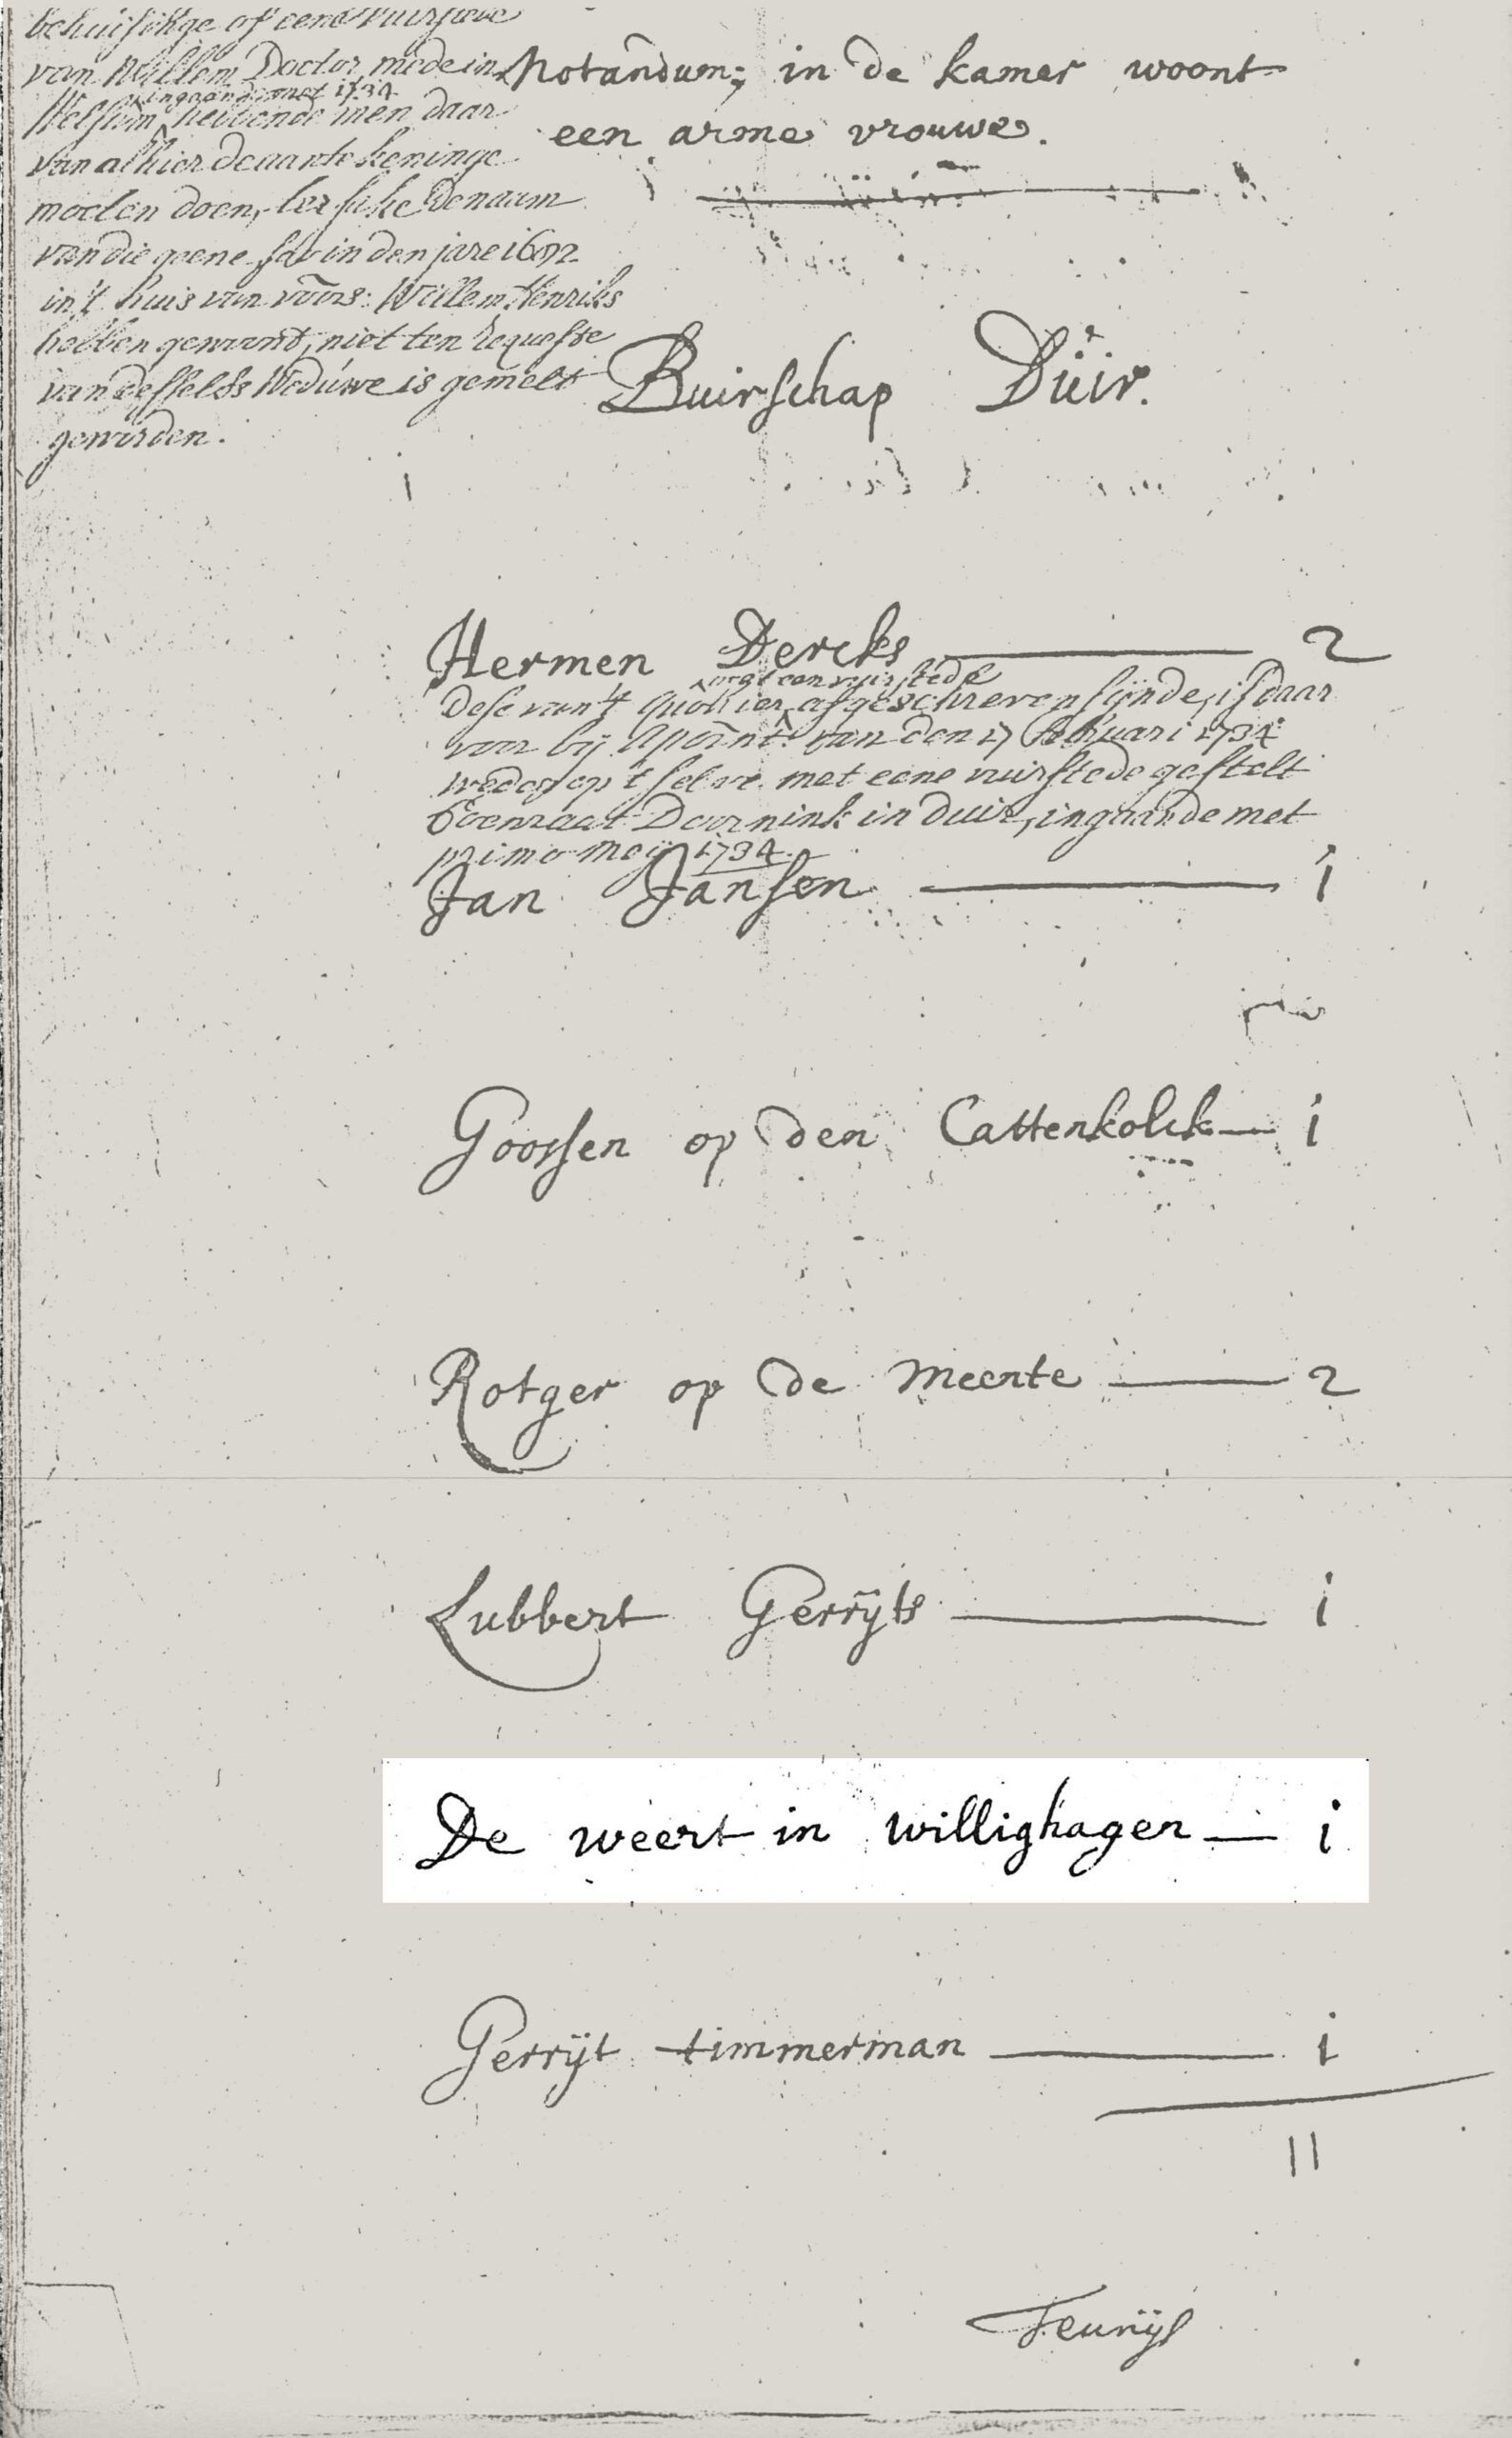 behuisinge of eene vuirstede
van Willem Doctor mede in
ingaande met 1734
Welsum, hebbende men daar
van alhier de aantekeninge
moeten doen, ter sake de naam
van die geene so in den jare 1692
in't huis van voors: Willem Henriks
hebben gewoont, niet ten requeste
van desselfs Weduwe is gemelt
geworden.
Notandum; in de kamer woont
een arme vrouwe.
Buirschap Duir.
Hermen Dercks 2
met een vuirstede
Dese van't quohier afgeschreven sijnde, is daar
voor bij Apoinct. van den 17 februari 1734
weder op 't selve met eene vuirstede gestelt
Coenraat Doornink in Duir, ingaande met
primo Meij 1734.
Jan Jansen i
Goossen op den Cattenkolck i
Rotger op de Meente 2
Lubbert Gerrijts i
De weert in willighagen i
Gerrijt timmerman i
11
Teunijs